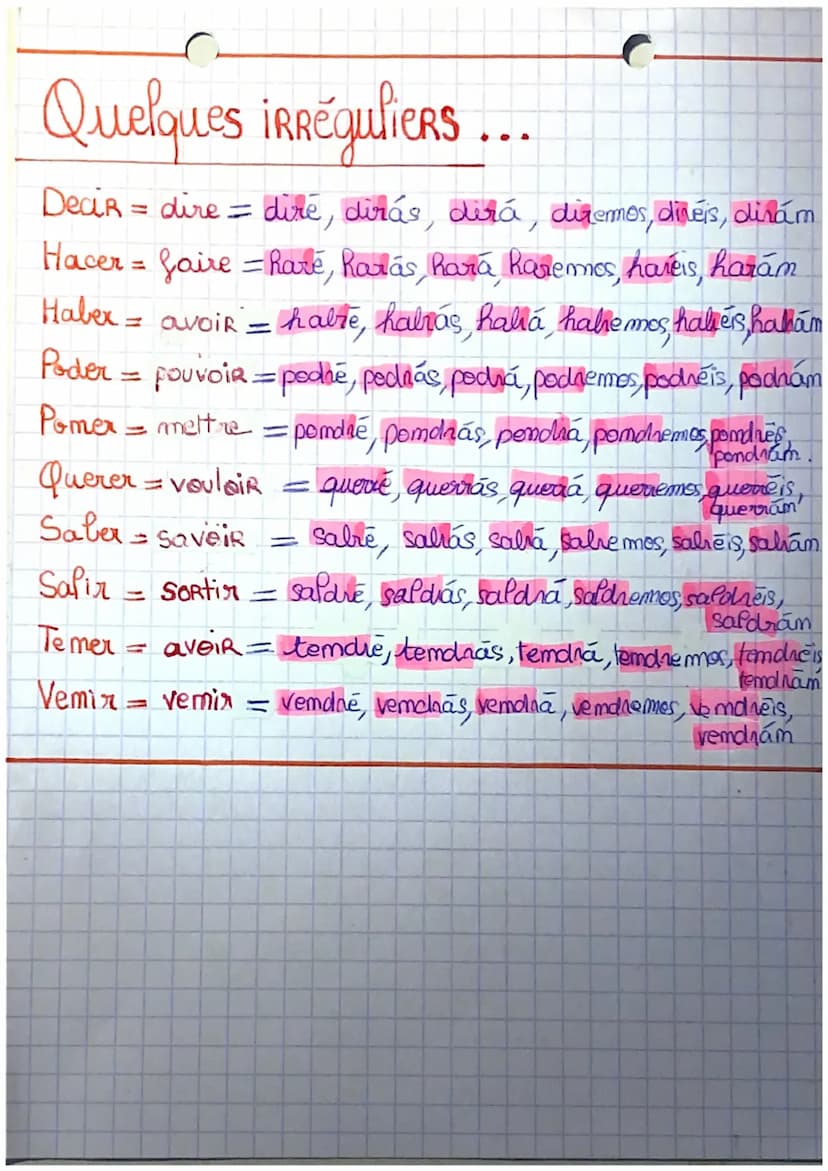 Quelques irréguliers ...
Decir = dire = diré, dirás, dirá, diremos, diréis, dirán
Hacer = faire = haré, harás, hará, haremos, haréis, harán
Haber = avoir = habré, habrás, habrá, habremos, habréis, habrán
Poder = pouvoir = podré, podrás, podrá, podremos, podréis, podrán
Poner = mettre = pondré, pondrás, pondrá, pondremos, pondrés,
pondrán.
Querer = vouloir = querré, querrás, querrá, querremos, querréis,
querrán
Saber = savoir = sabré, sabrás, sabrá, sabremos, sabréis, sabrán
Salir = sortir = saldré, saldrás, saldrá, saldremos, saldréis,
saldrán
Tener = avoir = tendré, tendrás, tendrá, tendremos, tendréis
tendrán
Venir = venir = vendré, vendrás, vendrá, vendremos, vendréis,
vendrán